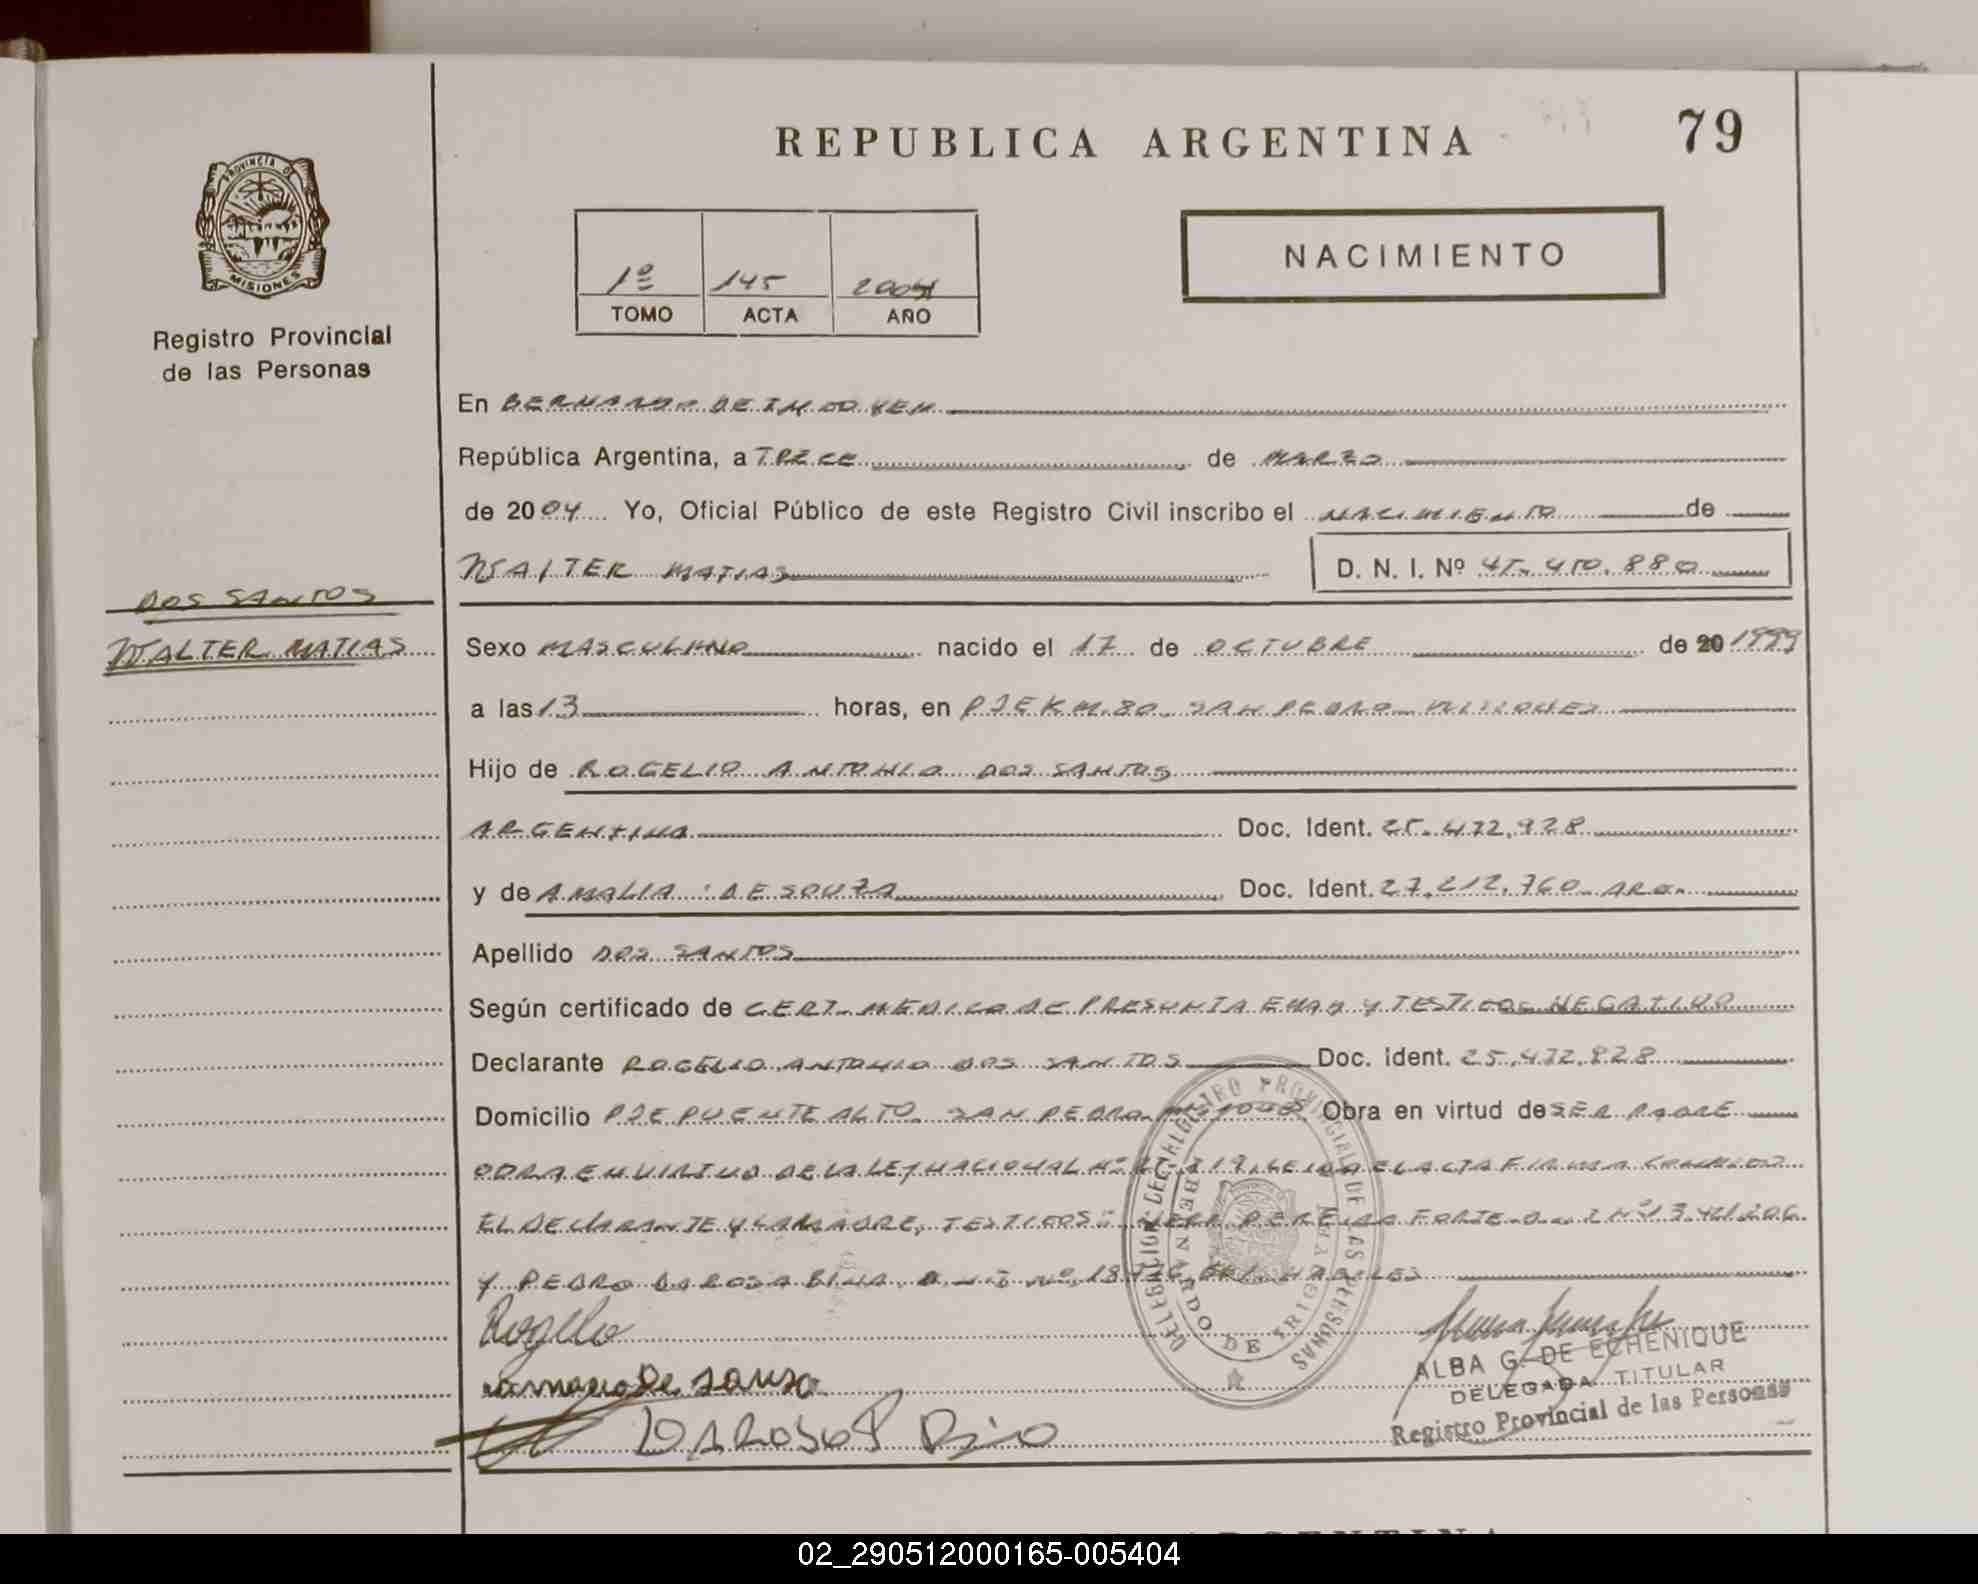 REPUBLICA ARGENTINA
79
PROVINCIA DE
MISIONES
Registro Provincial
de las Personas
1º 145 2004
TOMO ACTA AÑO
NACIMIENTO
En BERNARDO DE IRIGOYEN
República Argentina, a TRECE de MARZO
de 2004 Yo, Oficial Público de este Registro Civil inscribo el NACIMIENTO de
WALTER MATIAS D. N. I. Nº 45.410.880
DOS SANTOS
WALTER MATIAS
Sexo MASCULINO nacido el 17 de OCTUBRE de 20 1999
a las 13 horas, en PJE KM. 80 SAN PEDRO MISIONES
Hijo de ROGELIO ANTONIO DOS SANTOS
ARGENTINA Doc. Ident. 25.472.928
y de AMALIA DE SOUZA Doc. Ident. 27.212.760 ARG.
Apellido DOS SANTOS
Según certificado de CERT. MEDICO DE PRESUNTA EDAD Y TESTIGOS NEGATIVO
Declarante ROGELIO ANTONIO DOS SANTOS Doc. Ident. 25.472.928
Domicilio PJE PUENTE ALTO SAN PEDRO MISIONES Obra en virtud de SER PADRE
OBRA EN VIRTUD DE LA LEY NACIONAL Nº LEIDA EL ACTA FIRMA CONMIGO
EL DECLARANTE Y LA MADRE, TESTIGOS: PEREIRA FORTE D.N.I Nº 13.421.206
Y PEDRO DA ROSA D.N.I Nº 18. HABILES
DELEGACION DEL REGISTRO PROVINCIAL DE LAS PERSONAS
BERNARDO DE IRIGOYEN
Rogelio
De souza
DAROSA
ALBA G. DE ECHENIQUE
DELEGADA TITULAR
Registro Provincial de las Personas
ARGENTINA
02_290512000165-005404